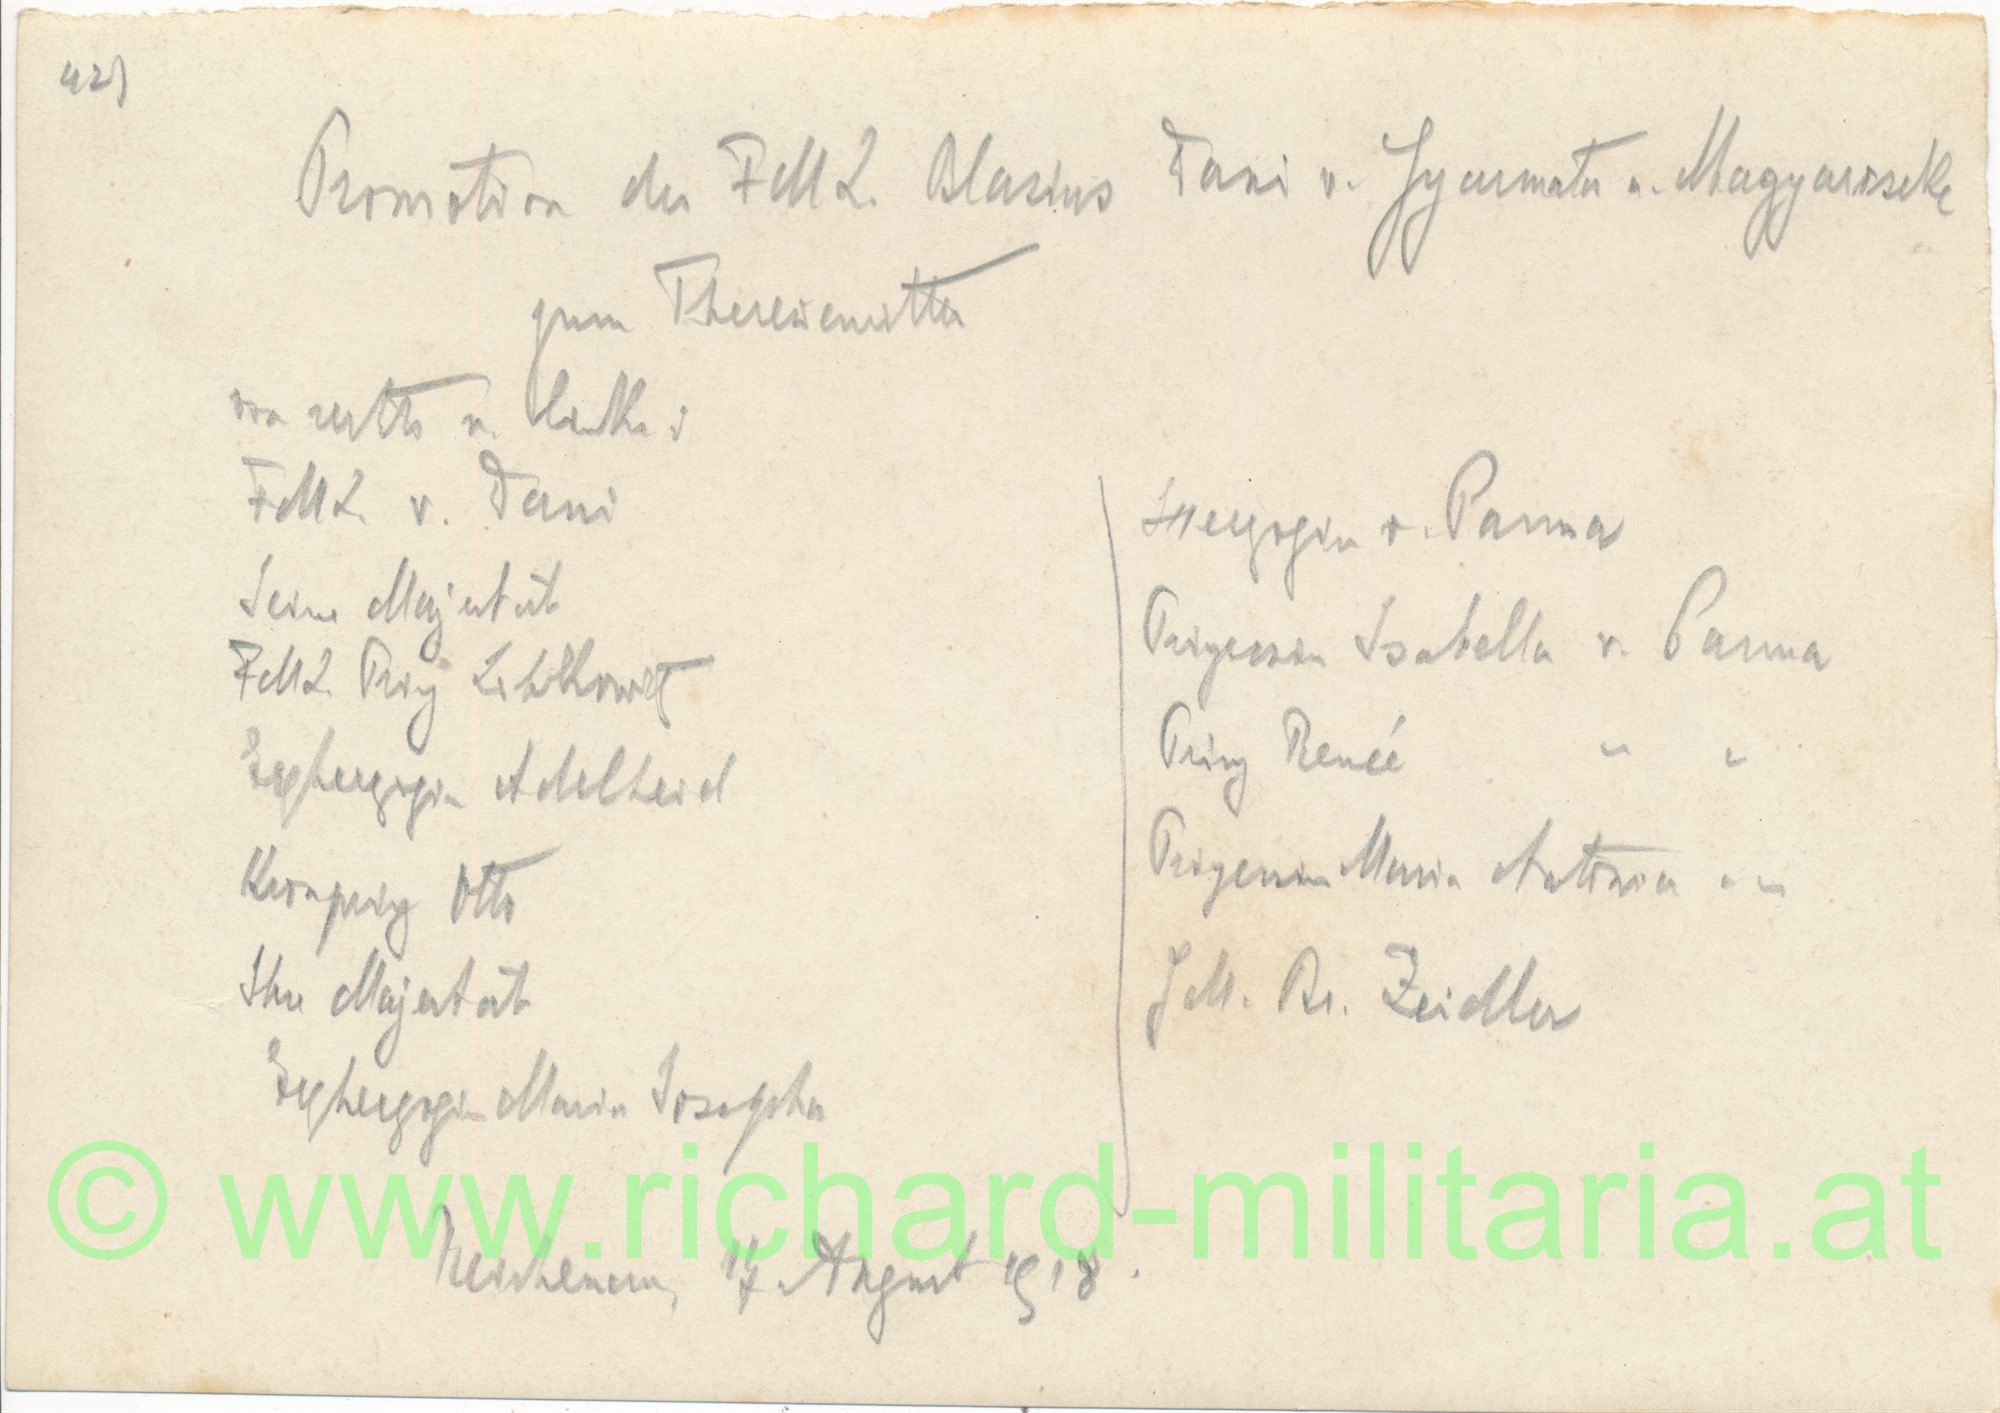 42)
Promotion des FML. Blasius Dani v. Gyarmata u. Magyarcseke
zum Theresienritter
von rechts n. links:
FML. v. Dani
Seine Majestät
FML. Prinz Lobkowitz
Erzherzogin Adelheid
Kronprinz Otto
Ihre Majestät
Erzherzogin Maria Josepha
Herzogin v. Parma
Prinzessin Isabella v. Parma
Prinz Reneé " "
Prinzessin Maria Antonia " "
GM. Br. Zeidler
Reichenau, 17. August 1918.
© www.richard-militaria.at